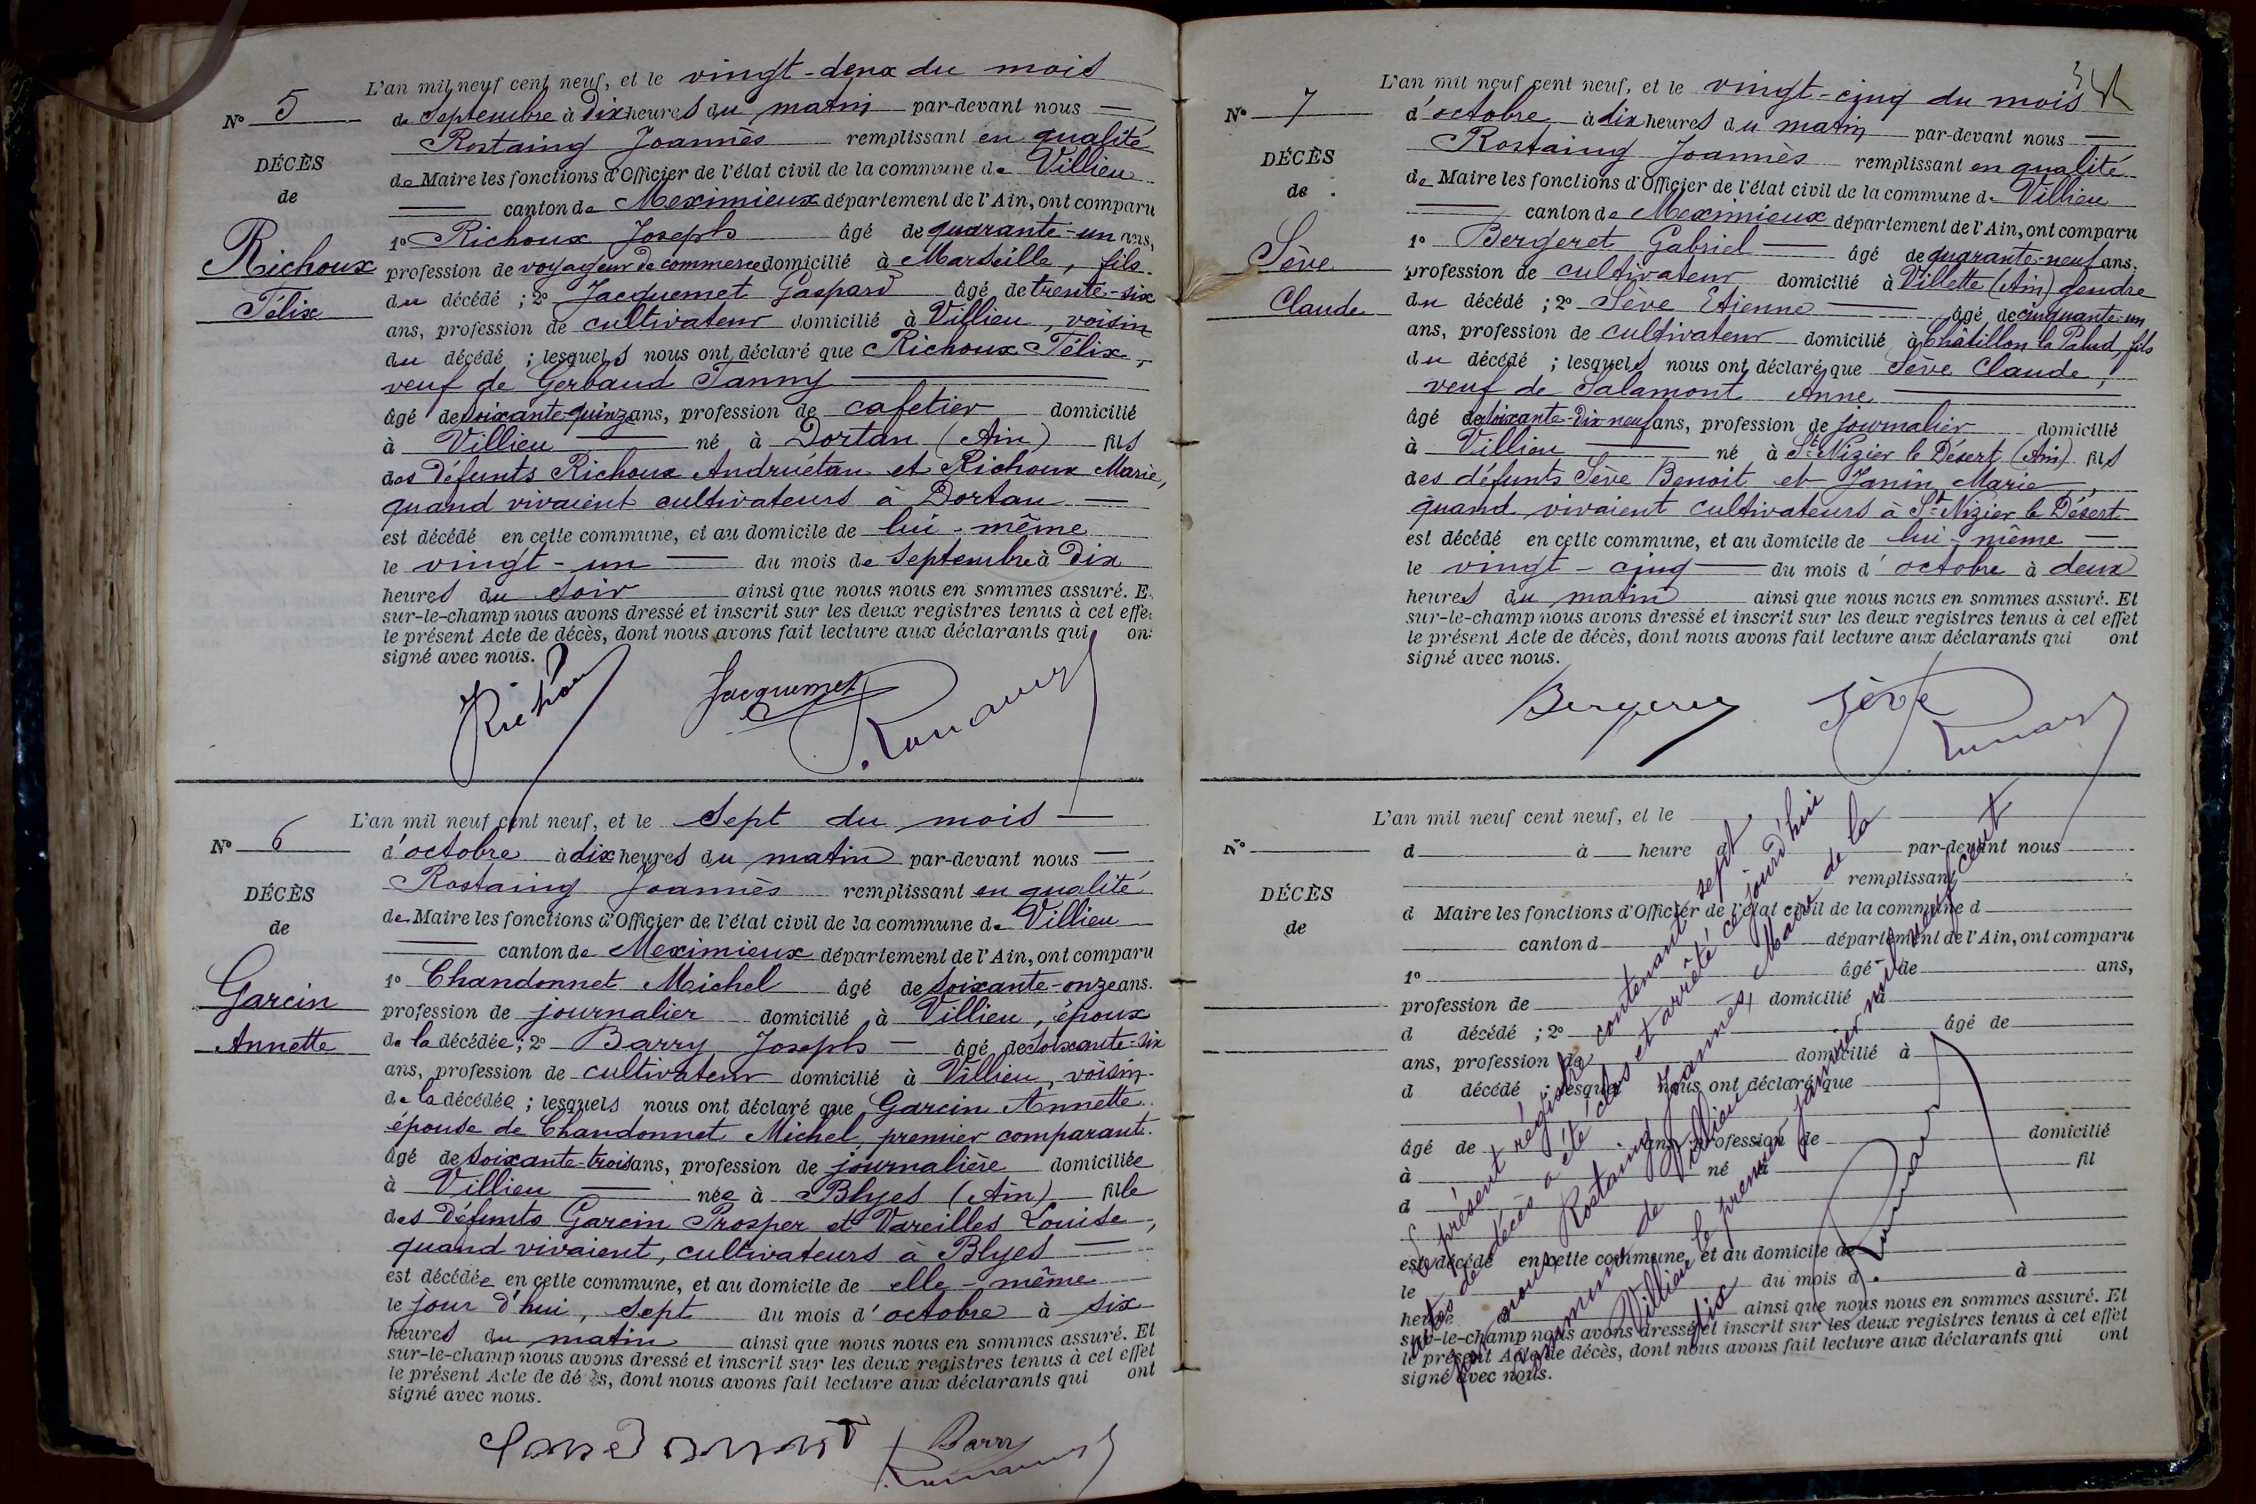 L'an mil neuf cent neuf, et le vingt-deux du mois
N° 5
de Septembre à dix heures du matin par-devant nous
Rostaing Joannès remplissant en qualité
DÉCÈS
de Maire les fonctions d'Officier de l'état civil de la commune de Villieu
de
canton de Meximieux département de l'Ain, ont comparu
1° Richoux Joseph âgé de quarante-un ans,
Richoux
profession de voyageur de commerce domicilié à Marseille, fils
Félix
du décédé ; 2° Jacquemet Gaspard âgé de trente-six
ans, profession de cultivateur domicilié à Villieu, voisin
du décédé ; lesquels nous ont déclaré que Richoux Félix,
veuf de Gerbaud Fanny
âgé de soixante-quinze ans, profession de cafetier domicilié
à Villieu né à Dortan (Ain) fils
des défunts Richoux Andruétan et Richoux Marie,
quand vivaient cultivateurs à Dortan
est décédé en cette commune, et au domicile de lui-même
le vingt-un du mois de Septembre à dix
heures du soir ainsi que nous nous en sommes assuré. E
sur-le-champ nous avons dressé et inscrit sur les deux registres tenus à cet effe
le présent Acte de décès, dont nous avons fait lecture aux déclarants qui on
signé avec nous.
Richoux Jacquemet
Rostaing
L'an mil neuf cent neuf, et le sept du mois
N° 6
d'octobre à dix heures du matin par-devant nous
Rostaing Joannès remplissant en qualité
DÉCÈS
de Maire les fonctions d'Officier de l'état civil de la commune de Villieu
de
canton de Meximieux département de l'Ain, ont comparu
1° Chandonnet Michel âgé de soixante-onze ans.
Garcin
profession de journalier domicilié à Villieu, époux
Annette
de la décédée ; 2° Barry Joseph âgé de soixante-six
ans, profession de cultivateur domicilié à Villieu, voisin
de la décédée ; lesquels nous ont déclaré que Garcin Annette
épouse de Chandonnet Michel, premier comparant.
âgé de soixante-trois ans, profession de journalière domiciliée
à Villieu née à Blyes (Ain) fille
des défunts Garcin Prosper et Vareilles Louise,
quand vivaient, cultivateurs à Blyes
est décédée en cette commune, et au domicile de elle-même
le jour d'hui, sept du mois d'octobre à six
heures du matin ainsi que nous nous en sommes assuré. Et
sur-le-champ nous avons dressé et inscrit sur les deux registres tenus à cet effet
le présent Acte de dé ès, dont nous avons fait lecture aux déclarants qui ont
signé avec nous.
Barry
Rostaing
L'an mil neuf cent neuf, et le vingt-cinq du mois
N° 7
d'octobre à dix heures du matin par-devant nous
Rostaing Joannès remplissant en qualité
DÉCÈS
de Maire les fonctions d'Officier de l'état civil de la commune de Villieu
de
canton de Meximieux département de l'Ain, ont comparu
1° Bergeret Gabriel âgé de quarante-neuf ans,
Sève
profession de cultivateur domicilié à Villette (Ain) gendre
Claude
du décédé ; 2° Sève Etienne âgé de cinquante-un
ans, profession de cultivateur domicilié à Châtillon la Palud, fils
du décédé ; lesquels nous ont déclaré que Sève Claude,
veuf de Salamont Anne
âgé de soixante-dix-neuf ans, profession de journalier domicilié
à Villieu né à St Nizier le Désert (Ain) fils
des défunts Sève Benoit et Janin Marie,
quand vivaient cultivateurs à St Nizier le Désert
est décédé en cette commune, et au domicile de lui-même
le vingt-cinq du mois d'octobre à deux
heures du matin ainsi que nous nous en sommes assuré. Et
sur-le-champ nous avons dressé et inscrit sur les deux registres tenus à cet effet
le présent Acte de décès, dont nous avons fait lecture aux déclarants qui ont
signé avec nous.
Bergeret Sève
Rostaing
L'an mil neuf cent neuf, et le
N°
d à heure d par-devant nous
remplissant
DÉCÈS
d Maire les fonctions d'Officier de l'état civil de la commune d
de
canton d département de l'Ain, ont comparu
1° âgé de ans,
profession de domicilié à
d décédé ; 2° âgé de
ans, profession de domicilié à
d décédé ; lesquel nous ont déclaré que
âgé de ans, profession de domicilié
à né à fil
d
est décédé en cette commune, et au domicile de
le du mois d à
heure d ainsi que nous nous en sommes assuré. Et
sur-le-champ nous avons dressé et inscrit sur les deux registres tenus à cet effet
le présent Acte de décès, dont nous avons fait lecture aux déclarants qui ont
signé avec nous.
Le présent régistre contenant sept
actes de décès a été clos et arrêté ce jourd'hui
par nous, Rostaing Joannès, Maire de la
commune de Villieu
Villieu le premier janvier mil neuf cent
dix
Rostaing